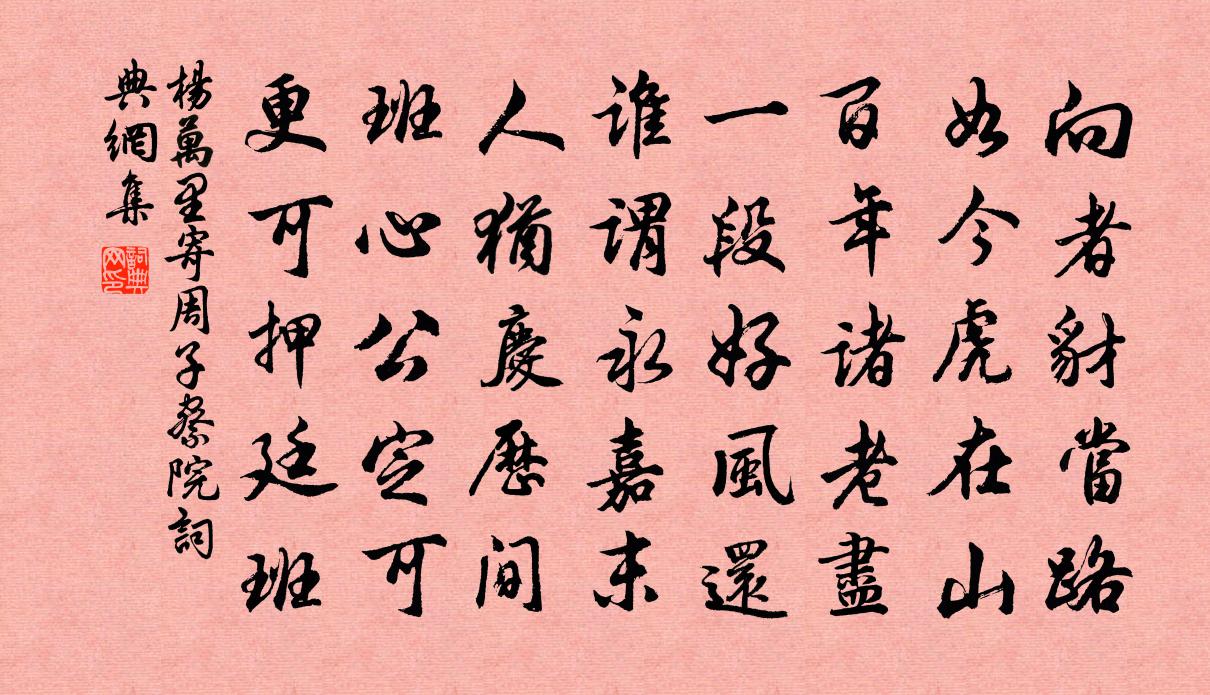 向者豺當路
如今虎在山
百年諸老盡
一段好風還
誰謂永嘉末
人猶慶歷間
班心公定可
更可押廷班
楊萬里寄周子蔡院詞
典網集
詞典
网印